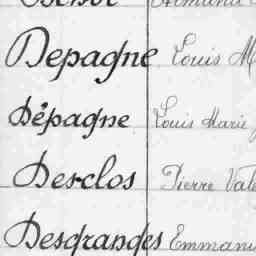 Depagne Louis M
Dépagne Louis Marie
Desclos Pierre Vale
Desgranges Emmanu